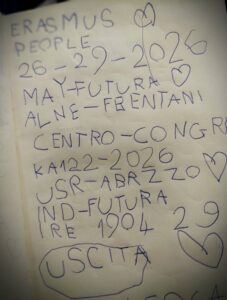 ERASMUS
PEOPLE
26-29-2026
MAY-FUTURA
ALNE-FRENTANI
CENTRO-CONGR
KA122-2026
USR-ABRZZO
IND-FUTURA
IRE 1904 29
USCITA